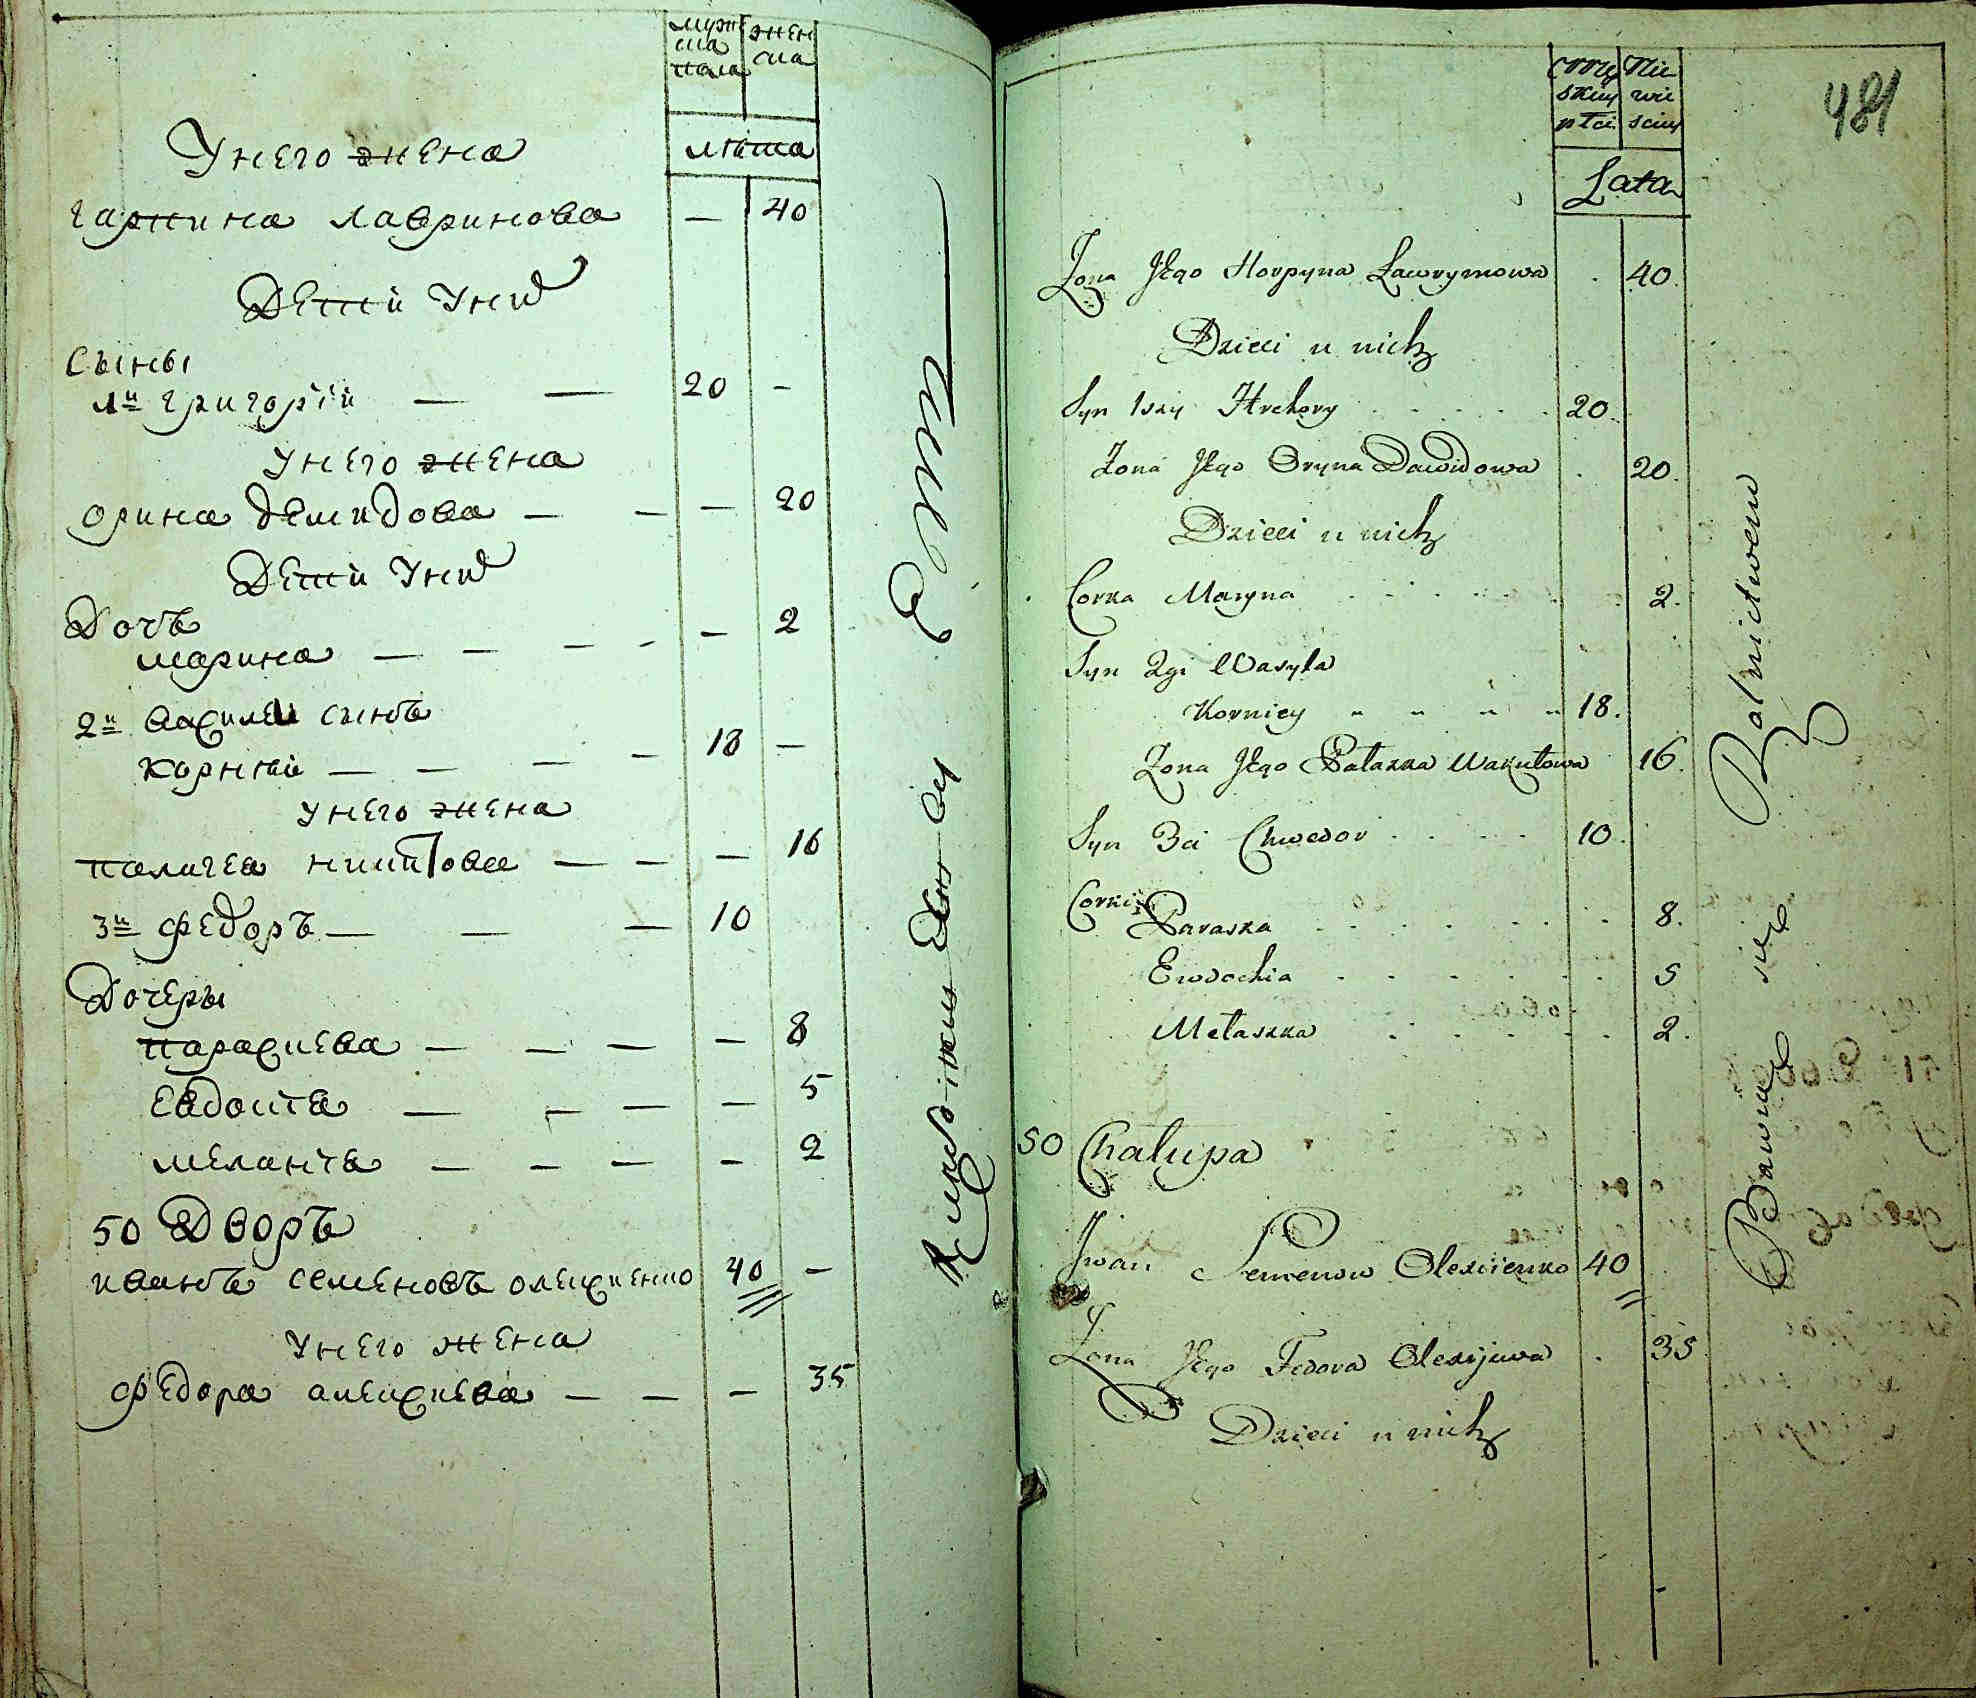 мужска пола
женска
лѣта
У него жена
гарпина лавринова — 40
Дети у них
Сыны
1й григорій — — 20 —
У него жена
орина демидова — — — 20
Дети у них
Дочь
марина — — — — — 2
2й васили сынъ
корнѣй — — — — 18 —
У него жена
палагея никитова — — — 16
3й федоръ — — — 10
Дочеры
парасцева — — — — 8
евдокія — — — — 5
меланія — — — — 2
50 Дворъ
иванъ семеновъ олексиенко 40 —
У него жена
федора алексиева — — — 35
męzkiey płci
Nie wie sciey
481
Lata
Zona Jego Horpyna Lawrynowa . 40.
Dzieci u nich
Syn 1szy Hrehory . . . . . 20.
Zona Jego Oryna Dawidowa . 20.
Dzieci u nich
Corka Maryna . . . . . 2.
Syn 2gi Wasyla
Korniey " " " " 18.
Zona Jego Pałazka Makutowa 16.
Syn 3ci Chwedor . . . . 10.
Corki
Paraska . . . . . . 8.
Ewdochia . . . . . . 5
Mełaszka . . . . . 2.
50 Chałupa
Jwan Semenow Olexiienko 40
Zona Jego Fedora Olexijewa . 35
Dzieci u nich
Bawią się Rolnictwem